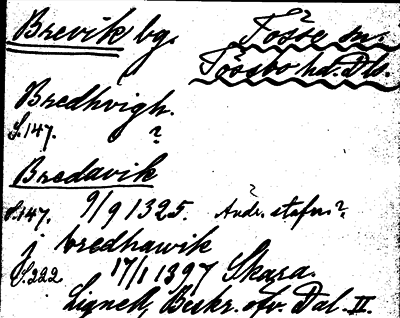 Brevik bg. Tösse sn.
Tössbo hd. Dls.
Bredhvigh.
S. 147. ?
Bredavik
S. 147. 9/9 1325. Andr. stafns?
j bredhawik
S. 222 17/1 1397 Skara.
Lignell, Beskr. öfv. Dal. II.